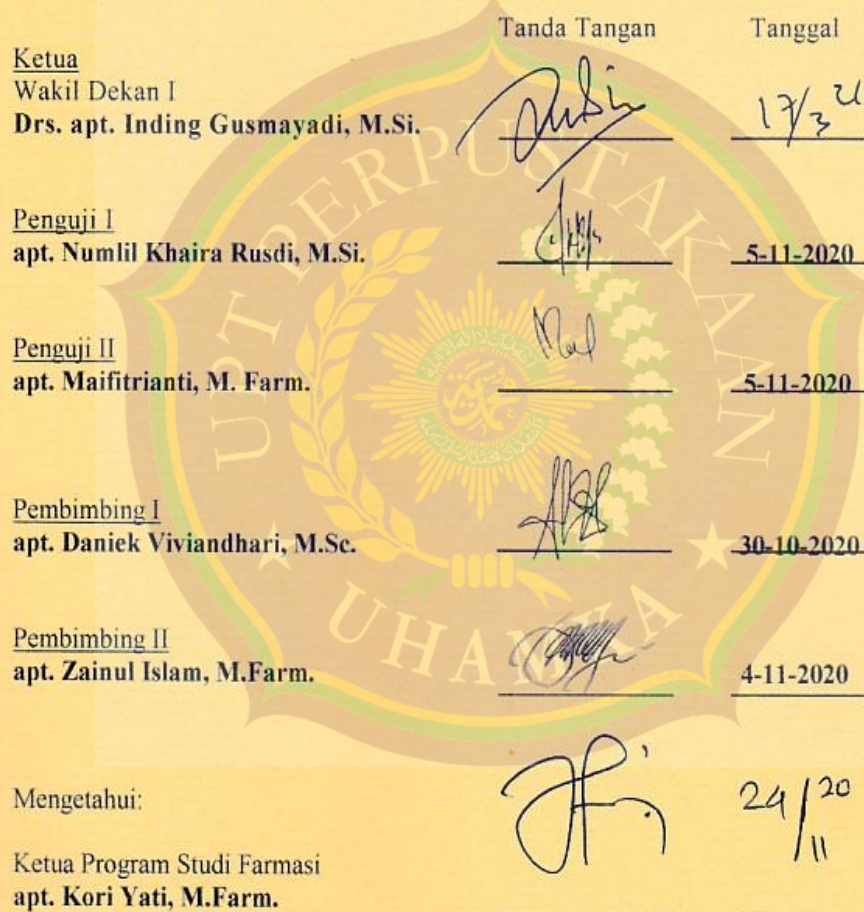 Tanda Tangan Tanggal
Ketua
Wakil Dekan I
Drs. apt. Inding Gusmayadi, M.Si. 17/3 21
Penguji I
apt. Numlil Khaira Rusdi, M.Si. 5-11-2020
Penguji II
apt. Maifitrianti, M. Farm. 5-11-2020
Pembimbing I
apt. Daniek Viviandhari, M.Sc. 30-10-2020
Pembimbing II
apt. Zainul Islam, M.Farm. 4-11-2020
Mengetahui: 24/11 20
Ketua Program Studi Farmasi
apt. Kori Yati, M.Farm.
UPT PERPUSTAKAAN
UHAMKA